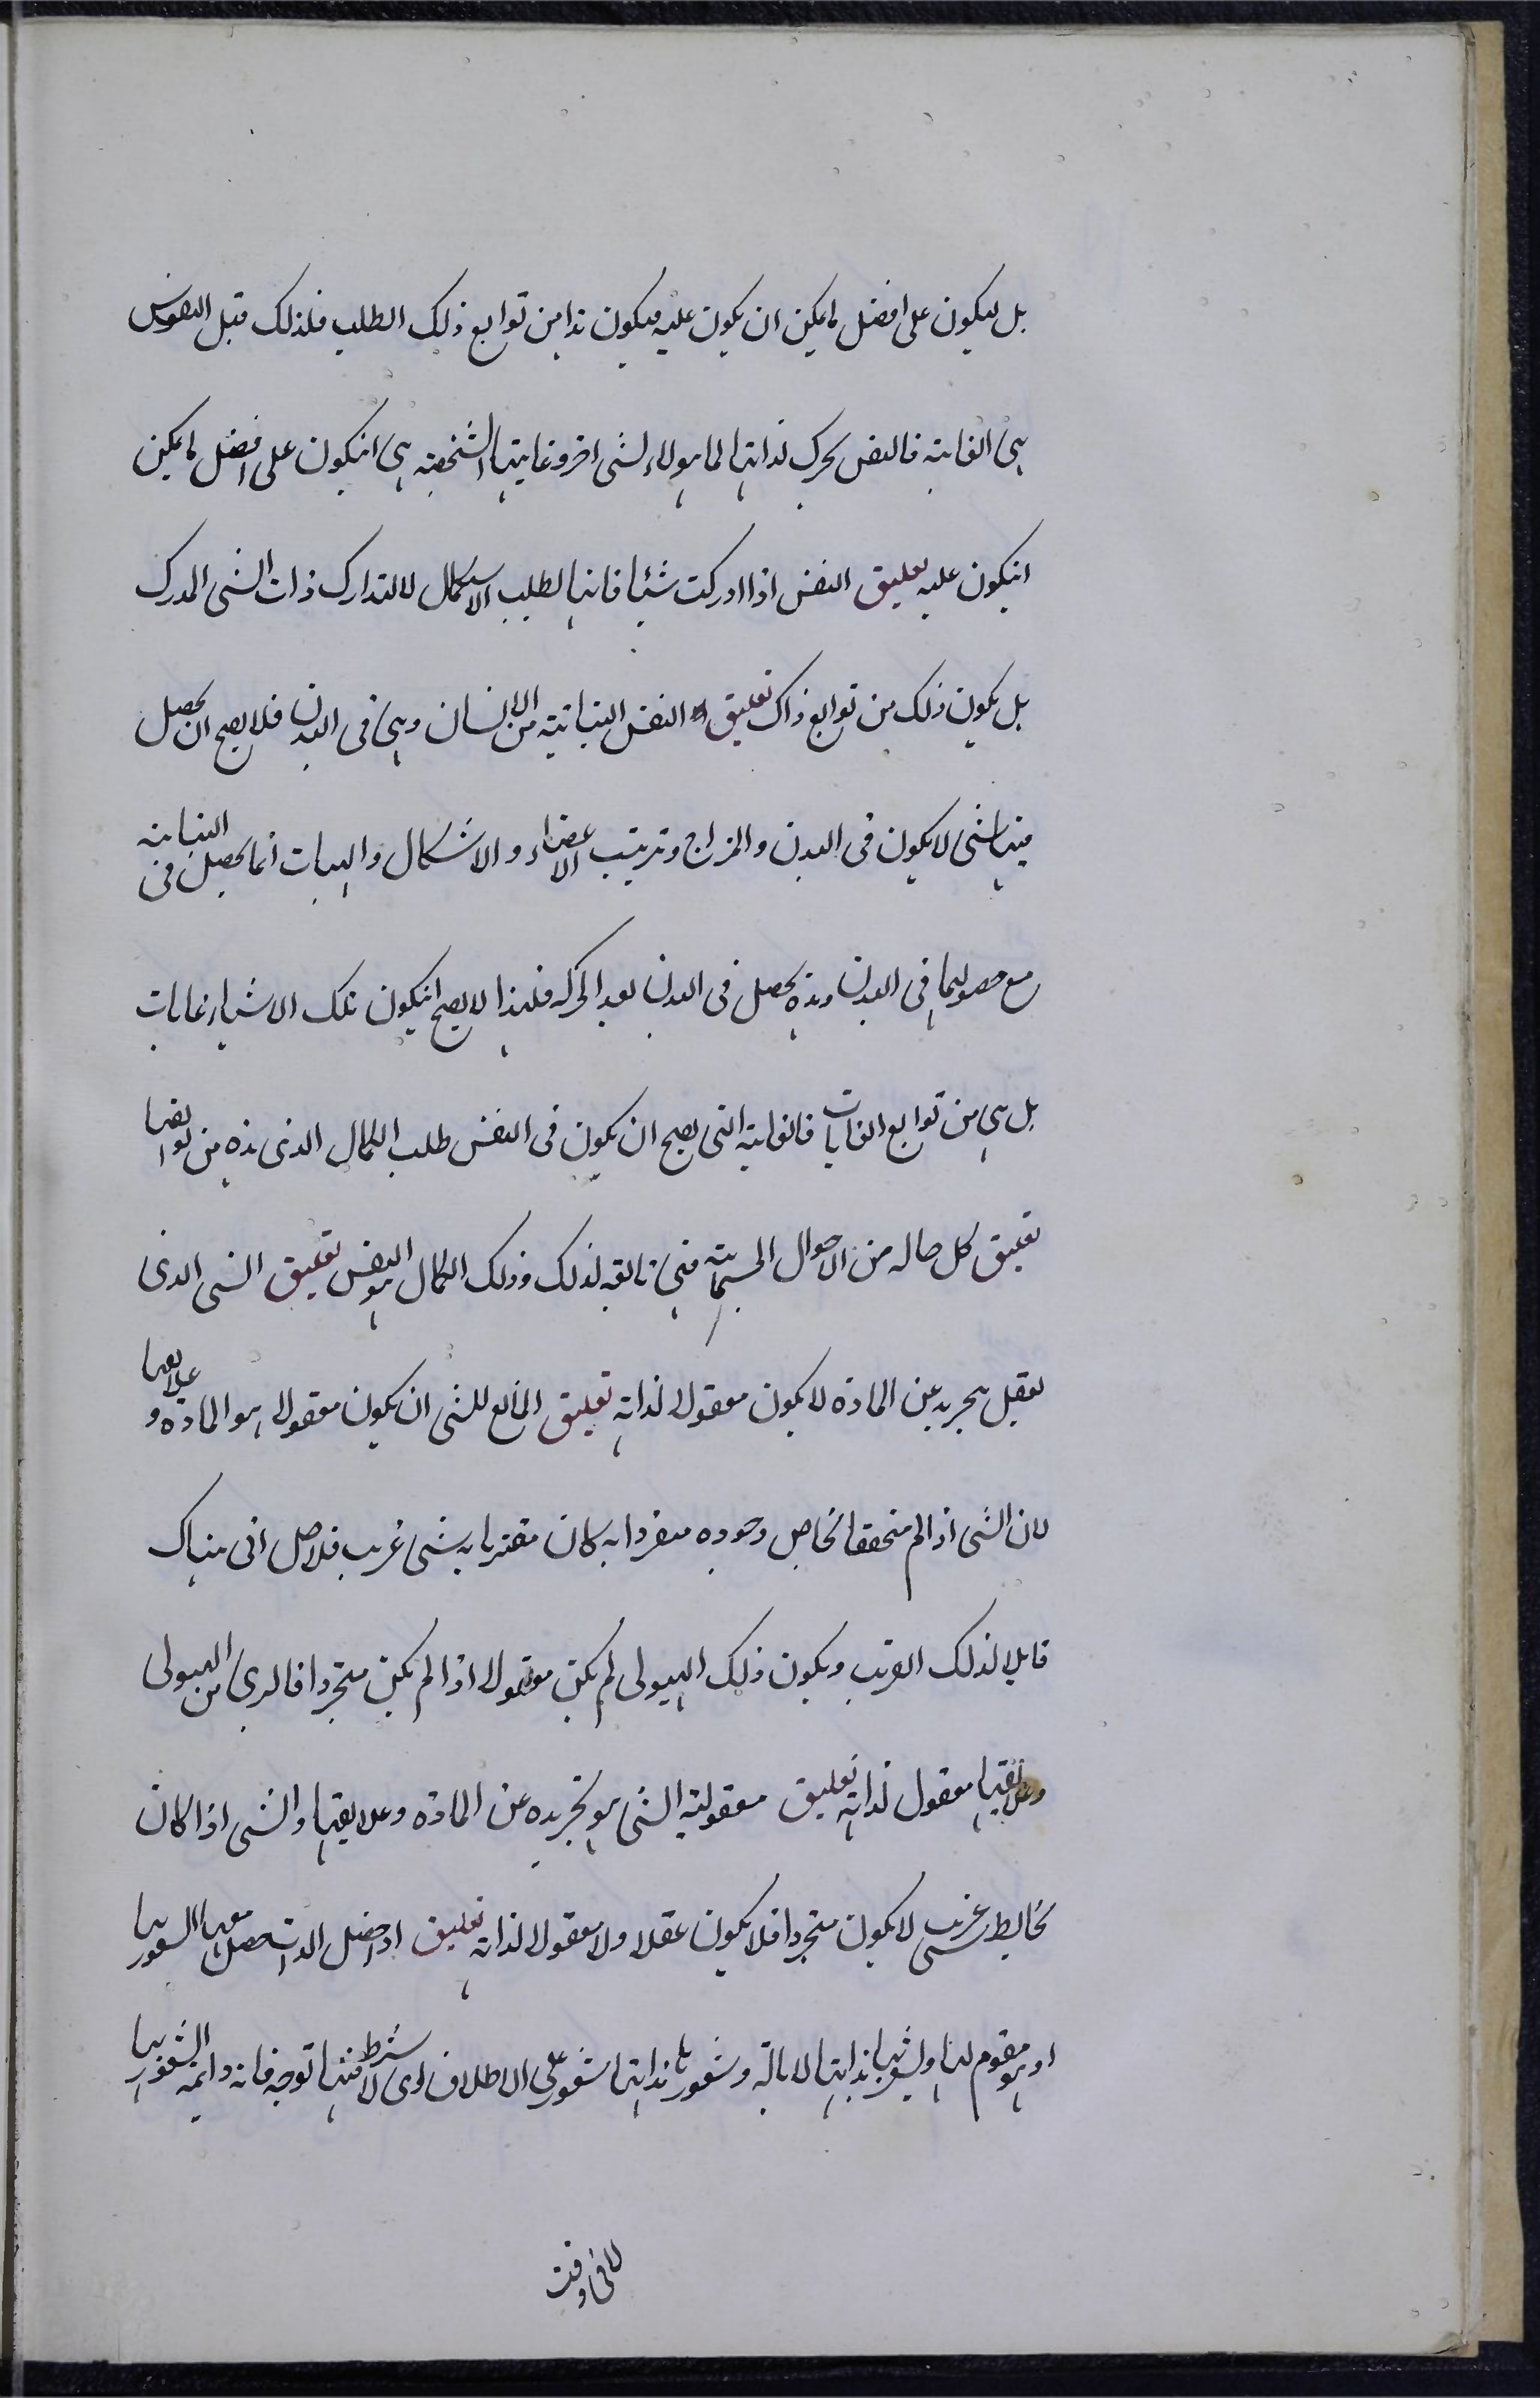 بل ليكون على افضل ما يمكن ان يكون عليه فيكون هذا من توابع ذلك الطلب فلذلك قيل النفوس
هى الغاية فالنفس تحرك لذاتها لما هو لا لشى اخر وغايتها الشخصية هى انيكون على افضل ما يمكن
انيكون عليه تعليق النفس اذا ادركت شيئا فانها لطلب الاستكمال لا لتدارك ذات الشى المدرك
بل يكون ذلك من توابع ذاك تعليق النفس النباتية من الانسان وهى فى البدن فلا يصح ان يحصل
فيها شى لا يكون فى البدن والمزاج وترتيب الاعضاء والاشكال والهيات انما يحصل فى النباتية
مع حصولها فى البدن وهذه تحصل فى البدن بعد الحركه فلهذا لا يصح انيكون تلك الاشياء غايات
بل هى من توابع الغايات فالغاية التى يصح ان يكون فى النفس طلب الكمال الذى هذه من توابعها
تعليق كل حاله من الاحوال الجسمانية فهى تابعة لذلك وذلك الكمال هو النفس تعليق الشى الذى
يعقل بتجريد عن المادة لا يكون معقولا لذاته تعليق المانع للشى ان يكون معقولا هو المادة و علايقها
لان الشى اذا لم متحققا بخاص وجوده متفردا به كان مقترنا به شى غريب فلا صل انى هناك
قابلا لذلك الغريب ويكون ذلك الهيولى لم يكن معقولا اذا لم يكن متجردا فالبرى من الهيولى
وعلايقها معقول لذاته تعليق معقولية الشى هو تجريده عن المادة وعلايقها والشى اذا كان
يخالطه شى غريب لا يكون متجردا فلا يكون عقلا ولا معقولا لذاته تعليق اذا حصل الذات حصل معها الشعور بها
او هو مقوم لها وليشعر بها بذاتها لا بالة وشعورها بذاتها شعور على الاطلاق اى لا شرط فيها توجه فانه دايمه الشعور بها
لا فى وقت